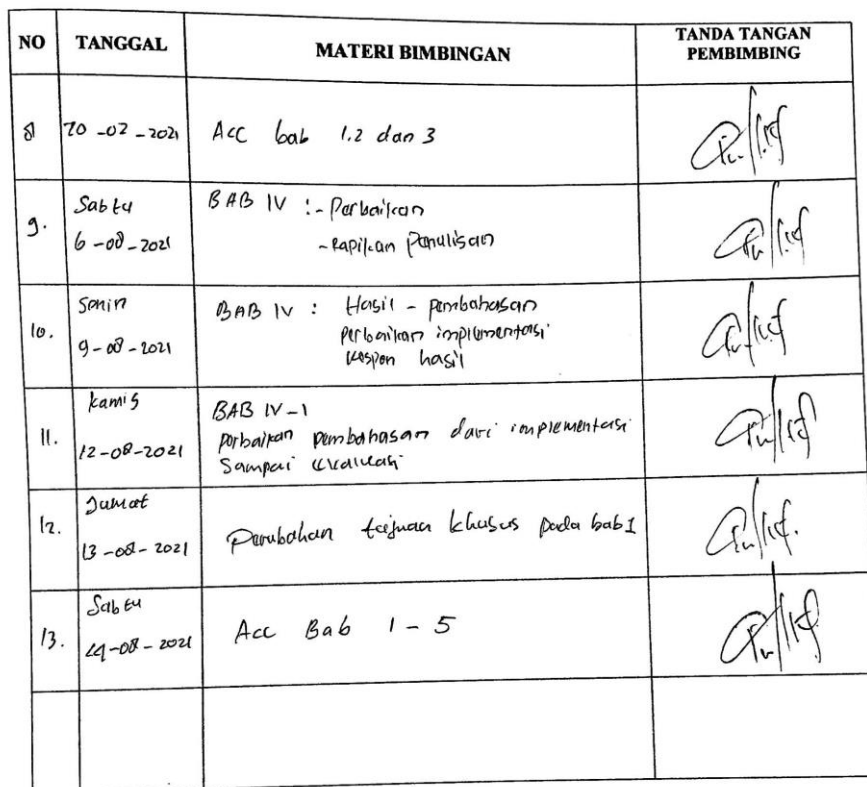 NO TANGGAL MATERI BIMBINGAN TANDA TANGAN PEMBIMBING
8 20-02-2021 Acc bab 1.2 dan 3
9. Sabtu BAB IV : - Perbaikan
6-08-2021 - Rapikan Penulisan
10. Senin BAB IV : Hasil - pembahasan
9-08-2021 perbaikan implementasi
respon hasil
11. Kamis BAB IV-1
12-08-2021 perbaikan pembahasan dari implementasi
Sampai evaluasi
12. Jumat
13-08-2021 Perubahan tujuan khusus pada bab 1
13. Sabtu
14-08-2021 Acc Bab 1-5